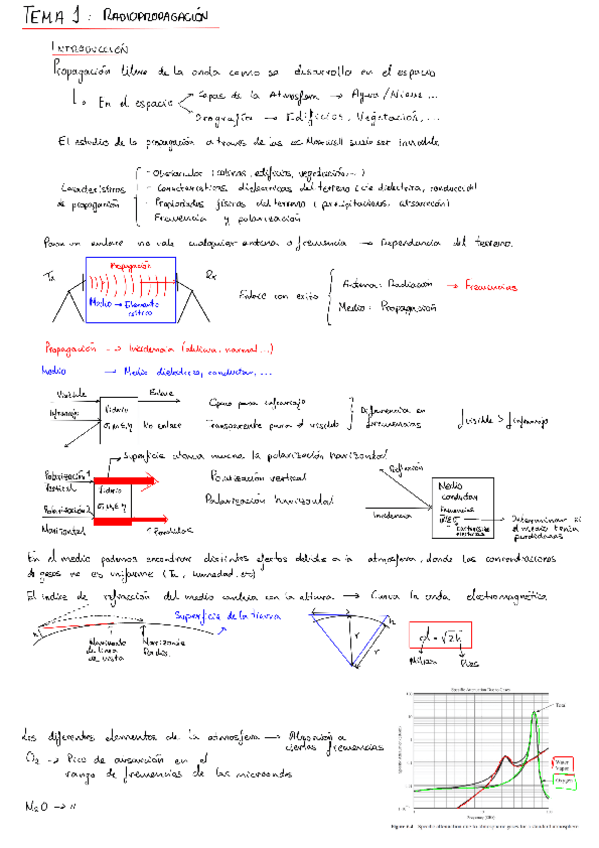 TEMA 1: RADIOPROPAGACIÓN
INTRODUCCIÓN
Propagación libre de la onda como se desarrolla en el espacio
En el espacio
Capas de la Atmosfera → Agua / Nieve ...
Orografía → Edificios, Vegetación, ...
El estudio de la propagación a traves de las ec Maxwell suele ser inviable
Características de propagación
- Obstaculos (colinas, edificios, vegetación, ...)
- Caracteristicas dielectricas del terreno (cte dielectrica, conducción)
- Propiedades físicas del terreno (precipitaciones, absorción)
- Frecuencia y polarización
Para un enlace no vale cualquier antena o frecuencia → Dependencia del terreno.
Tx
Propagación
Rx
Medio → Elemento critico
Enlace con exito
Antena: Radiación → Frecuencias
Medio: Propagación
Propagación → Incidencia (oblicua, normal ...)
Medio → Medio dielectrico, conductor, ...
Visible
Enlace
Infrarojo
Vidrio
No enlace
Opaco para infrarojo
Transparente para el visible
Diferencia en frecuencias
f visible > f infrarojo
Superficie atenua mucho la polarización horizontal
Polarización 1
Vertical
Polarización 2
Horizontal
Vidrio
Polarización vertical
Polarización horizontal
Reflexión
Incidencia
Medio conductor
Frecuencias
Determinar si el medio tenia perdidas
En el medio podemos encontrar distintos efectos debido a la atmosfera, donde las concentraciones
de gases no es uniforme (Tª, humedad, etc)
El indice de refracción del medio cambia con la altura → Curva la onda electromagnética
Superficie de la tierra
Horizonte de linea de vista
Horizonte Radio
h
r
r
d = √2h
Millas
Pies
Los diferentes elementos de la atmosfera → Absorción a ciertas frecuencias
O₂ → Pico de absorción en el
rango de frecuencias de las microondas
N₂O → "
Total
Water Vapor
Oxygen
Frequency (GHz)